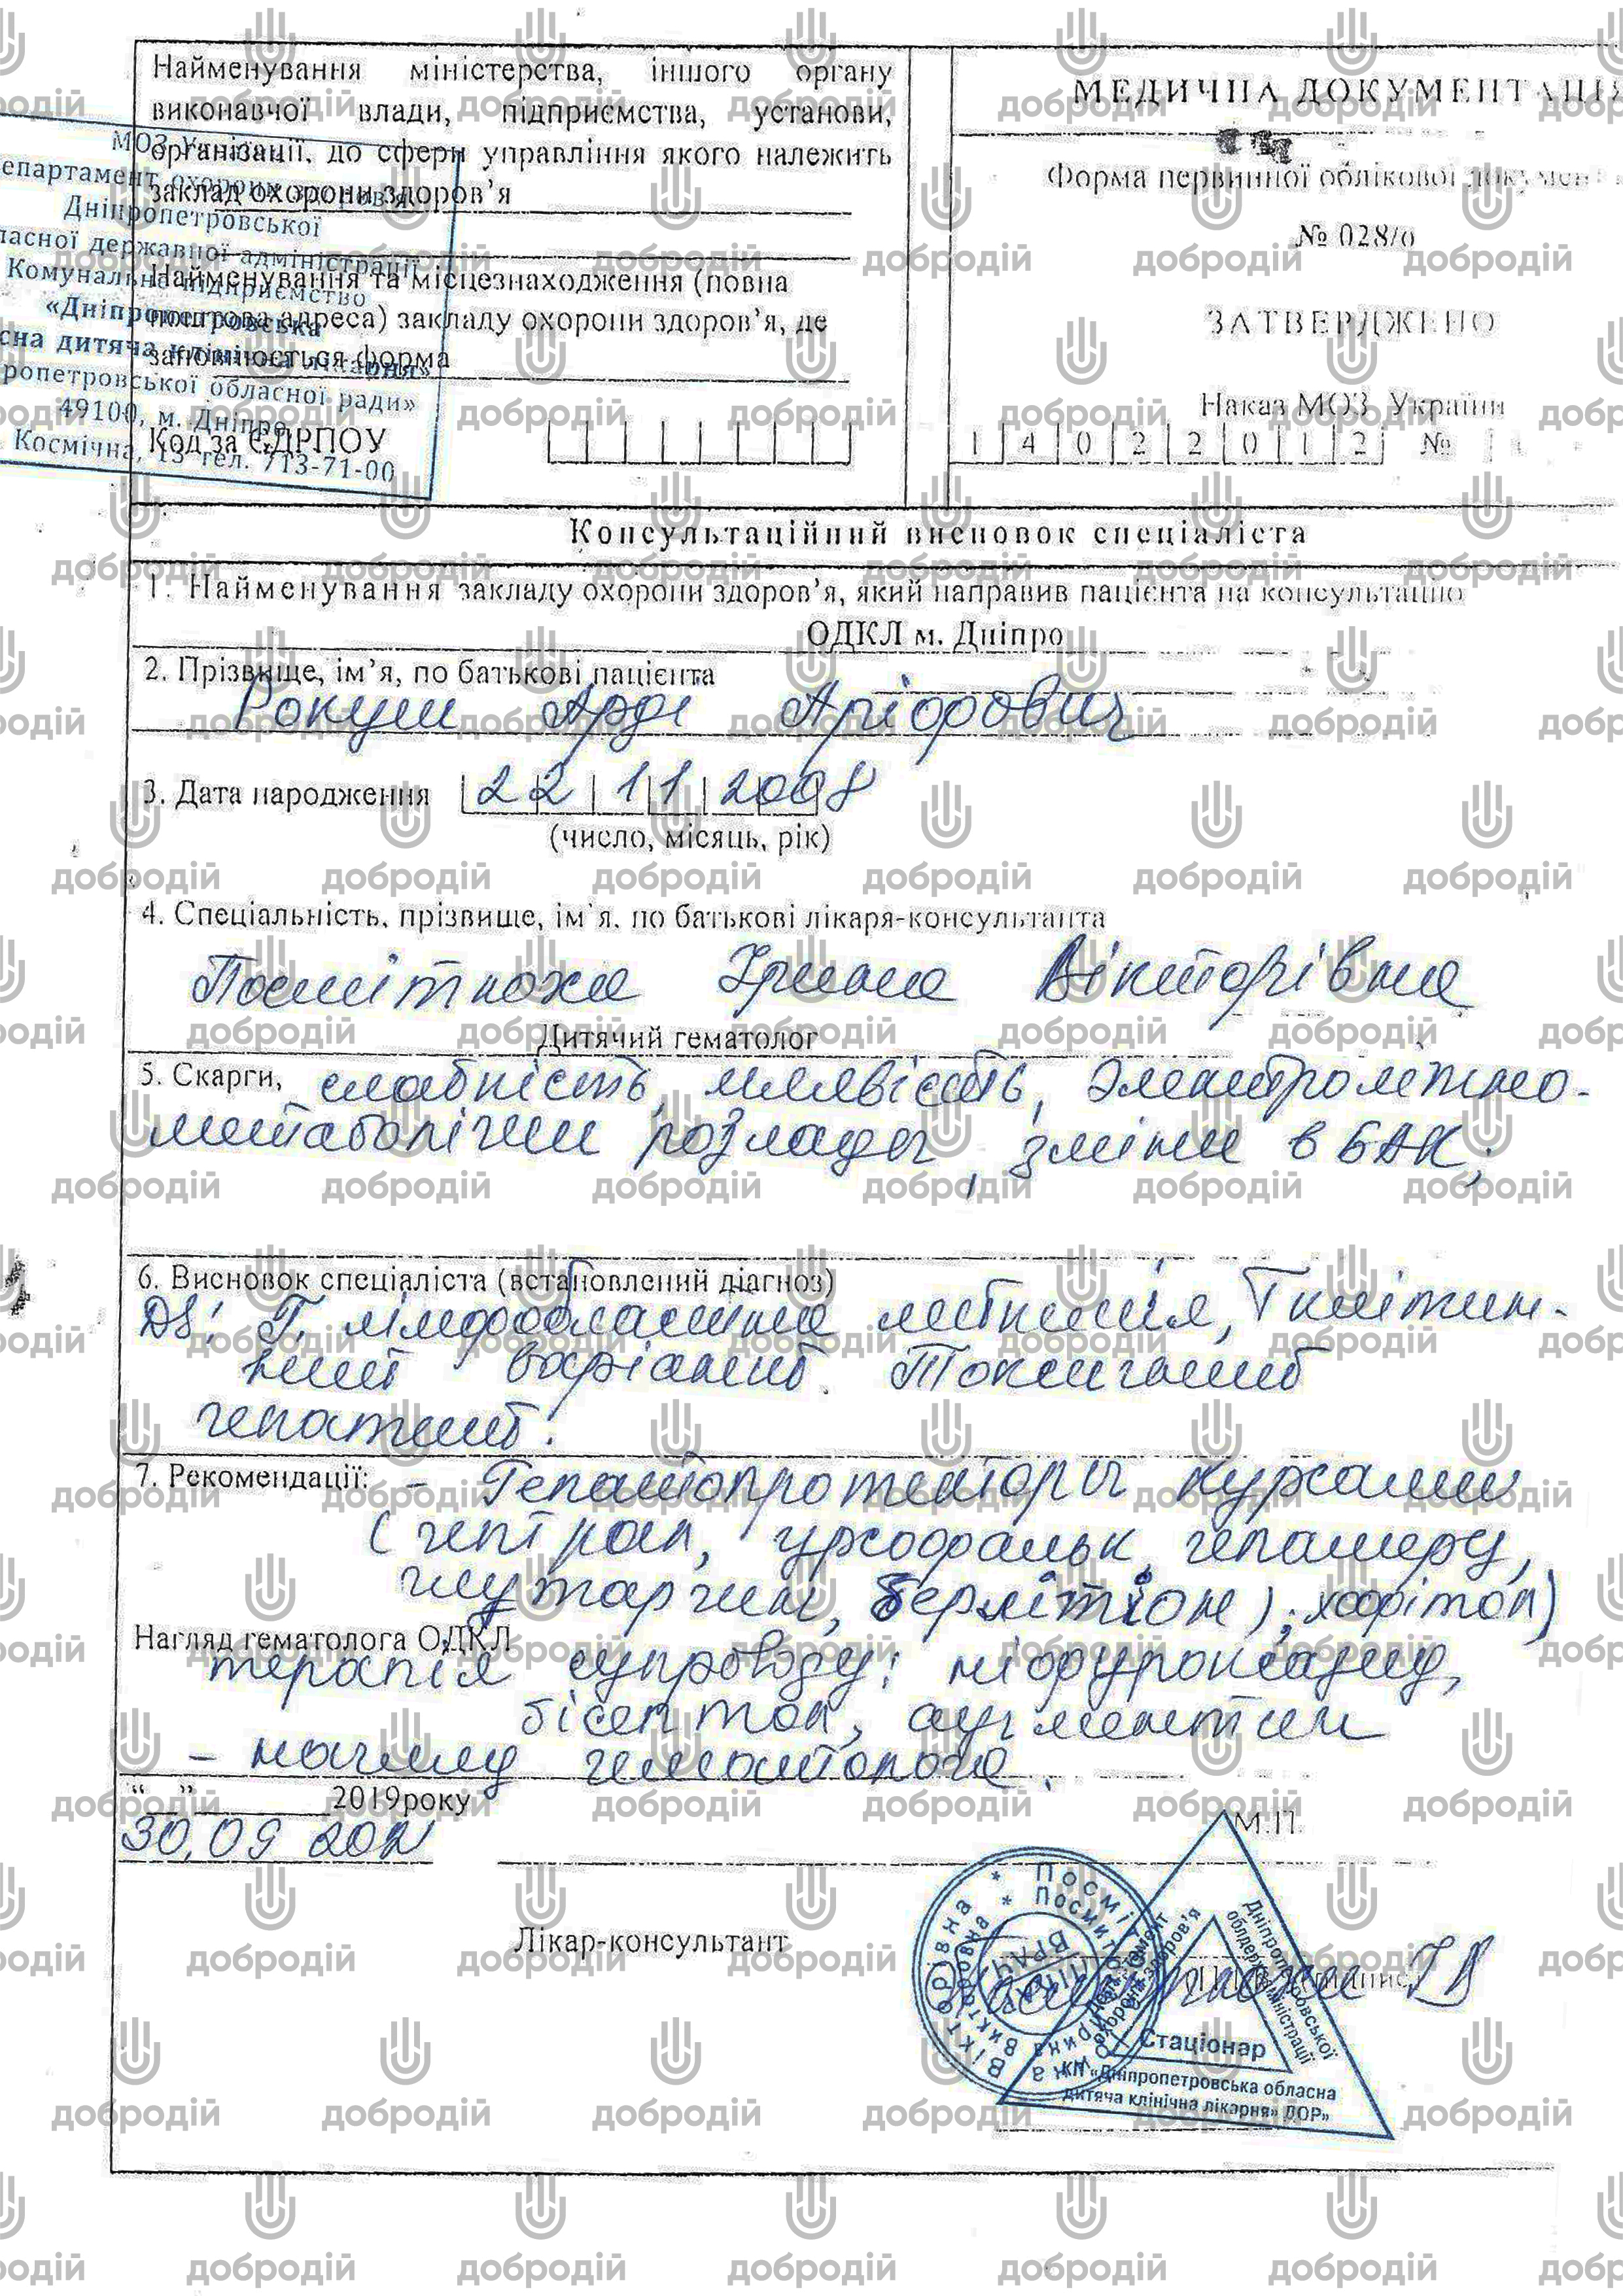 Найменування міністерства, іншого органу
виконавчої влади, підприємства, установи,
організації, до сфери управління якого належить
заклад охорони здоров’я
Найменування та місцезнаходження (повна
поштова адреса) закладу охорони здоров’я, де
заповнюється форма
Код за ЄДРПОУ
МОЗ України
епартамент охорони здоров'я
Дніпропетровської
ласної державної адміністрації
Комунальне підприємство
«Дніпропетровська
сна дитяча клінічна лікарня»
ропетровської обласної ради»
49100, м. Дніпро,
Космічна, 13 тел. 713-71-00
МЕДИЧНА ДОКУМЕНТАЦІЯ
Форма первинної облікової документ
№ 028/о
ЗАТВЕРДЖЕНО
Наказ МОЗ України
1 4 0 2 2 0 1 2 №
Консультаційний висновок спеціаліста
1. Найменування закладу охорони здоров’я, який направив пацієнта на консультацію
ОДКЛ м. Дніпро
2. Прізвище, ім’я, по батькові пацієнта
3. Дата народження 22 11 2008
(число, місяць, рік)
4. Спеціальність, прізвище, ім’я, по батькові лікаря-консультанта
Посмітюха Ірина Вікторівна
Дитячий гематолог
5. Скарги, слабкість, млявість, електролітно-
метаболічни розлади, зміни в БАК;
6. Висновок спеціаліста (встановлений діагноз)
DS: Г. лімфобластна лейкемія, Т клітин-
ний варіант. Токсичний
гепатит.
7. Рекомендації: - Гепатопротектори курсами
(гептрал, урсофальк, гепамерц,
глутаргин, берлітіон), хофітол)
Нагляд гематолога ОДКЛ
терапія супроводу: ніфуроксазид,
бісептол, аугментин
- нагляд гематолога.
“__”________2019року
30.09 2021
М.П.
Лікар-консультант
Посмітюха ІВ
Стаціонар
КП «Дніпропетровська обласна
дитяча клінічна лікарня» ДОР»
Дніпропетровської
облдержадміністрації
Департамент
охорони здоров'я
добродій